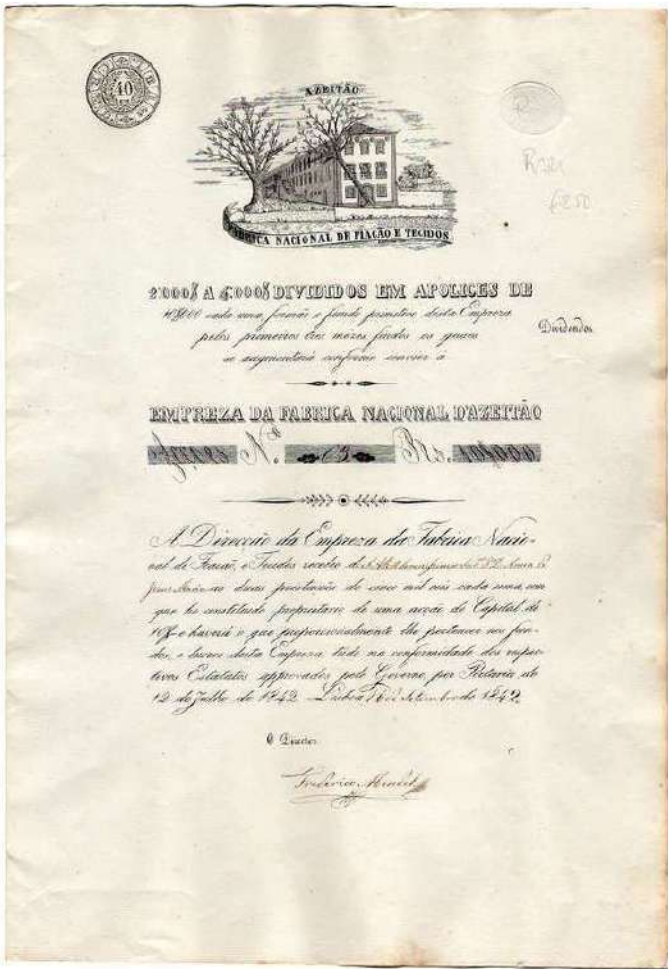 40
AZEITÃO
FABRICA NACIONAL DE FIAÇÃO E TECIDOS
R
£250
2:000$ A 4:000$ DIVIDIDOS EM APOLICES DE
10$000 cada uma, formão o fundo primitivo desta Empreza
pelos primeiros tres mezes findos os quaes
se augmentará conforme convier á
Dividendos
EMPREZA DA FABRICA NACIONAL D'AZEITÃO
N.º 63 Rs. 10$000
A Direcção da Empreza da Fabrica Nacio-
nal de Fiação, e Tecidos recebeo d
as duas prestações de cinco mil reis cada uma, com
que he constituido proprietario de uma acção do Capital de
10$ e haverá o que proporcionalmente lhe pertencer nos fun-
dos, e lucros desta Empreza, tudo na conformidade dos respec-
tivos Estatutos approvados pelo Governo por Portaria de
12 de Julho de 1842 Lisboa 16 de Setembro de 1842
O Director
Frederico